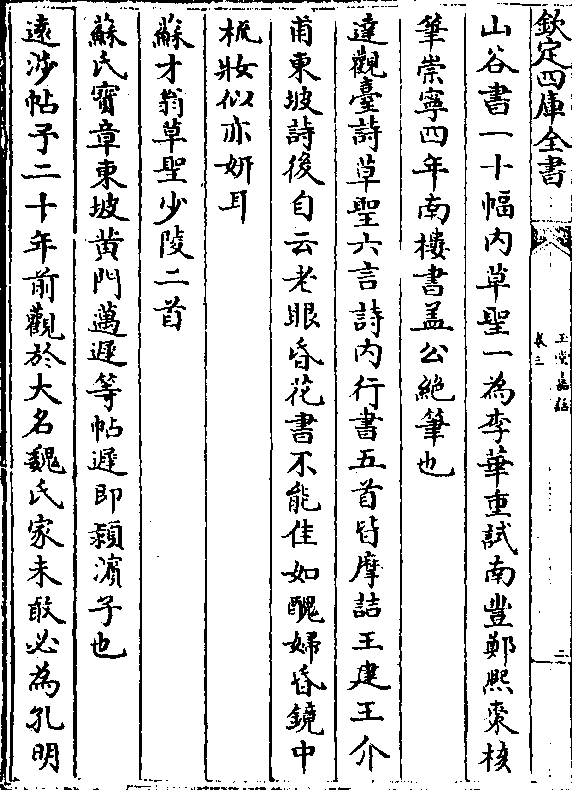 欽定四庫全書
玉堂嘉話
卷三
二
山谷書一十幅內草聖一為李華重試南豐鄭熙棗核
筆崇寧四年南樓書蓋公絶筆也
達觀臺詩草聖六言詩內行書五首皆摩詰王建王介
甫東坡詩後自云老眼昏花書不能佳如醜婦昏鏡中
梳妝似亦妍耳
蘇才翁草聖少陵二首
蘇氏寳章東坡黄門薖遲等帖遲即潁濱子也
逺涉帖予二十年前觀於大名魏氏家未敢必為孔明